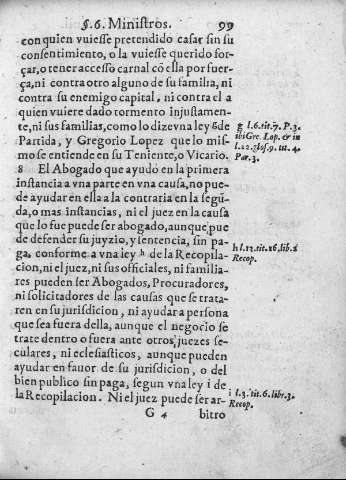 §.6. Ministros. 99
con quien vuiesse pretendido casar sin su
consentimiento, o la vuiesse querido for-
çar, o tener accesso carnal cõ ella por fuer-
ça, ni contra otro alguno de su familia, ni
contra su enemigo capital, ni contra el a
quien vuiere dado tormento injustamen-
te, ni sus familias, como lo dize vna ley g de
Partida, y Gregorio Lopez que lo mis-
mo se entiende en su Teniente, o Vicario.
8 El Abogado que ayudò en la primera
instancia a vna parte en vna causa, no pue-
de ayudar en ella a la contraria en la segũ-
da, o mas instancias, ni el juez en la causa
que lo fue puede ser abogado, aunque pue
de defender su juyzio, y sentencia, sin pa-
ga, conforme a vna ley h de la Recopila-
cion, ni el juez, ni sus officiales, ni familia-
res pueden ser Abogados, Procuradores,
ni solicitadores de las causas que se trata-
ren en su jurisdicion, ni ayudar a persona
que sea fuera della, aunque el negocio se
trate dentro o fuera ante otros, juezes se-
culares, ni eclesiasticos, aunque pueden
ayudar en fauor de su jurisdicion, o del
bien publico sin paga, segun vna ley i de
la Recopilacion. Ni el juez puede ser ar-
G 4 bitro
g l.6.tit.7. P.3.
ibi Gre. Lop. & in
l.22. glos.9. tit.4.
Par.3.
h l.12.tit.16.lib.2
Recop.
i l.3.tit.6.libr.3.
Recop.